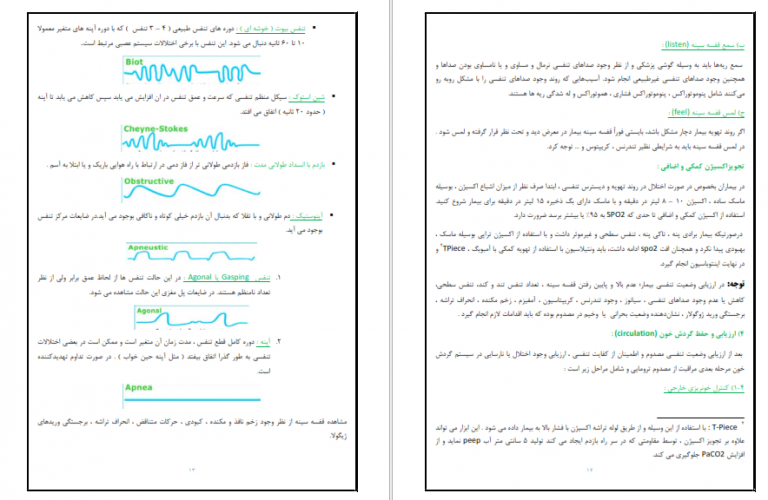 تنفس بیوت ( خوشه ای ) : دوره های تنفس طبیعی ( ۴ – ۳ تنفس ) که با دوره آپنه های متغیر معمولا
۱۰ تا ۶۰ ثانیه دنبال می شود. این تنفس با برخی اختلالات سیستم عصبی مرتبط است.
Biot
شین استوک : سیکل منظم تنفسی که سرعت و عمق تنفس در آن افزایش می یابد سپس کاهش می یابد تا آپنه
( حدود ۲۰ ثانیه ) اتفاق می افتد.
Cheyne-Stokes
بازدم با انسداد طولانی مدت : فاز بازدمی طولانی تر از فاز دمی در ارتباط با راه هوایی باریک و یا ابتلا به آسم .
Obstructive
آپنوستیک : دم طولانی و با تقلا که بدنبال آن بازدم خیلی کوتاه و ناکافی بوجود می آید.در ضایعات مرکز تنفس
بوجود می آید.
Apneustic
۱. تنفس Gasping یا Agonal : در این حالت تنفس ها از لحاظ عمق برابر ولی از نظر
تعداد نامنظم هستند. در ضایعات پل مغزی این حالت مشاهده می شود.
Agonal
۲. آپنه : دوره کامل قطع تنفس ، مدت زمان آن متغیر است و ممکن است در بعضی اختلالات
تنفسی به طور گذرا اتفاق بیفتد ( مثل آپنه حین خواب ) . در صورت تداوم تهدیدکننده
است.
Apnea
مشاهده قفسه سینه از نظر وجود زخم نافذ و مکنده ، کبودی ، حرکات متناقض ، انحراف تراشه ، برجستگی وریدهای
ژیگولا.
ب) سمع قفسه سینه (listen):
سمع ریه‌ها باید به وسیله گوشی پزشکی و از نظر وجود صداهای تنفسی نرمال و مساوی و یا نامساوی بودن صداها و
همچنین وجود صداهای تنفسی غیرطبیعی انجام شود. آسیب‌هایی که روند وجود صداهای تنفسی را با مشکل روبه رو
می‌کنند شامل پنوموتوراکس ، پنوموتوراکس فشاری ، هموتوراکس و له شدگی ریه ها هستند.
ج) لمس قفسه سینه (feel) :
اگر روند تهویه بیمار دچار مشکل باشد، بایستی فوراً قفسه سینه بیمار در معرض دید و تحت نظر قرار گرفته و لمس شود .
در لمس قفسه سینه باید به شرایطی نظیر تندرنس ، کریپتوس و ... توجه کرد.
تجویزاکسیژن کمکی و اضافی :
در بیماران بخصوص در صورت اختلال در روند تهویه و دیسترس تنفسی ، ابتدا صرف نظر از میزان اشباع اکسیژن ، بوسیله
ماسک ساده ، اکسیژن ۱۰ – ۸ لیتر در دقیقه و با ماسک دارای بگ ذخیره ۱۵ لیتر در دقیقه برای بیمار شروع کنید.
استفاده از اکسیژن کمکی و اضافی تا حدی که SPO2 به ۹۵٪ یا بیشتر برسد ضرورت دارد.
درصورتیکه بیمار برادی پنه ، تاکی پنه ، تنفس سطحی و غیرموثر داشت و با استفاده از اکسیژن تراپی بوسیله ماسک ،
بهبودی پیدا نکرد و همچنان افت spo2 ادامه داشت، باید ونتیلاسیون با استفاده از تهویه کمکی با آمبوبگ ، TPiece و
در نهایت اینتوباسیون انجام گیرد.
توجه: در ارزیابی وضعیت تنفسی بیمار؛ عدم بالا و پایین رفتن قفسه سینه ، تعداد تنفس تند و کند، تنفس سطحی،
کاهش یا عدم وجود صداهای تنفسی ، سیانوز ، وجود تندرنس ، کریپتاسیون ، آمفیزم ، زخم مکنده ، انحراف تراشه ،
برجستگی ورید ژوگولار ، نشان‌دهنده وضعیت بحرانی یا وخیم در مصدوم بوده که باید اقدامات لازم انجام گیرد .
۴) ارزیابی و حفظ گردش خون (circulation) :
بعد از ارزیابی وضعیت تنفسی مصدوم و اطمینان از کفایت تنفسی ، ارزیابی وجود اختلال یا نارسایی در سیستم گردش
خون مرحله بعدی مراقبت از مصدوم ترومایی و شامل مراحل زیر است :
۴-۱) کنترل خونریزی خارجی :
T-Piece : با استفاده از این وسیله و از طریق لوله تراشه اکسیژن با فشار بالا به بیمار داده می شود . این ابزار می تواند
علاوه بر تجویز اکسیژن ، توسط مقاومتی که در سر راه بازدم ایجاد می کند تولید ۵ سانتی متر آب peep نماید و از
افزایش PaCO2 جلوگیری می کند.